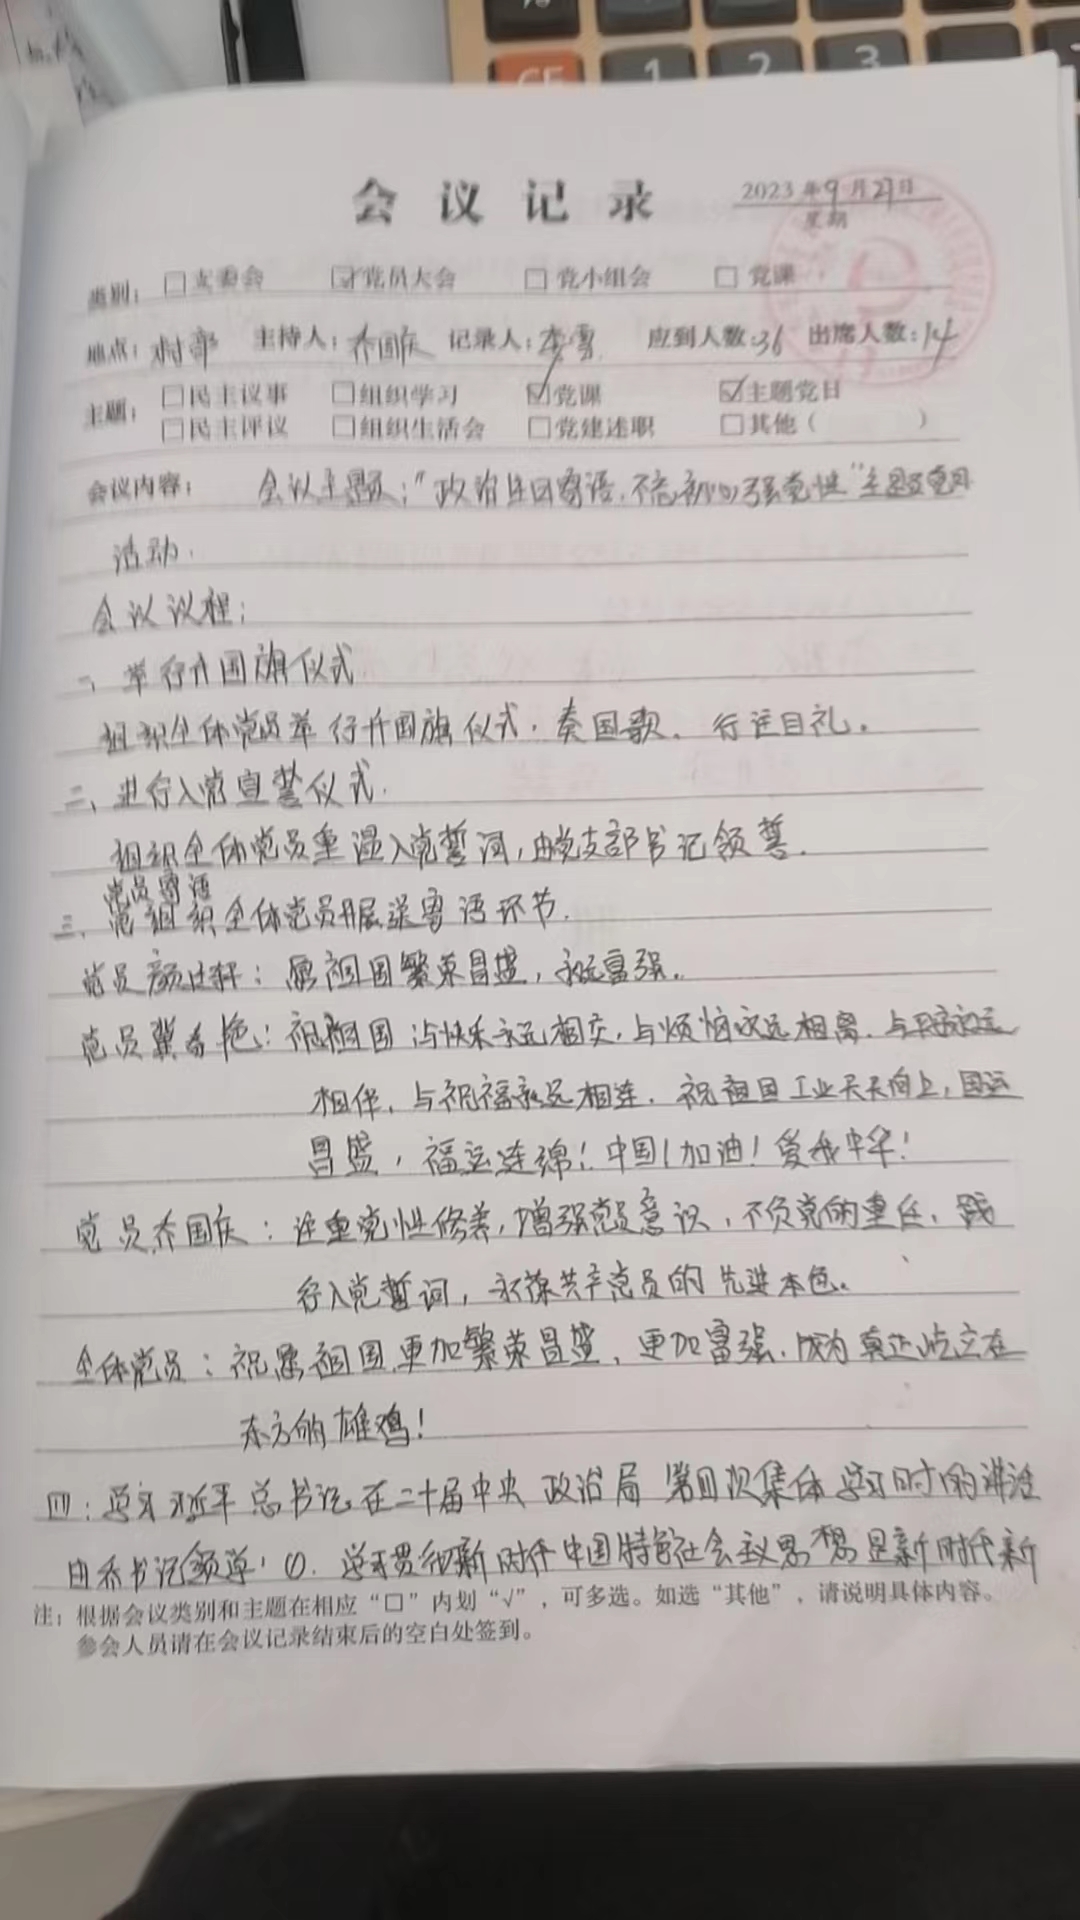 CE 1 2 3
会议记录
2023年9月27日
星期
类别：□支委会 ☑党员大会 □党小组会 □党课
地点：村部 主持人：乔国庆 记录人：李雪 应到人数：36 出席人数：14
主题：□民主议事 □组织学习 ☑党课 ☑主题党日
□民主评议 □组织生活会 □党建述职 □其他（ ）
会议内容： 会议主题："政治生日寄语,不忘初心强党性"主题党日
活动.
会议议程：
一、举行升国旗仪式
组织全体党员举行升国旗仪式,奏国歌、行注目礼。
二、进行入党宣誓仪式.
组织全体党员重温入党誓词,由党支部书记领誓.
党员寄语
三、党组织全体党员开展送寄语环节.
党员颜 轩：愿祖国繁荣昌盛,永远富强.
党员冀春艳：祝祖国：与快乐永远相交,与烦恼永远相离,与 永远
相伴、与祝福永远相连.祝祖国工业天天向上,国运
昌盛,福运连绵!中国!加油!爱我中华!
党员乔国庆：注重党性修养,增强党员意识,不负党的重任、践
行入党誓词,永葆共产党员的先进本色。
全体党员：祝愿祖国更加繁荣昌盛、更加富强.成为真正屹立在
东方的雄鸡!
四：学习习近平总书记在二十届中央政治局第四次集体学习时的讲话
由乔书记领学:①.学习贯彻新时代中国特色社会主义思想是新时代新
注：根据会议类别和主题在相应“□”内划“√”，可多选。如选“其他”，请说明具体内容。
参会人员请在会议记录结束后的空白处签到。